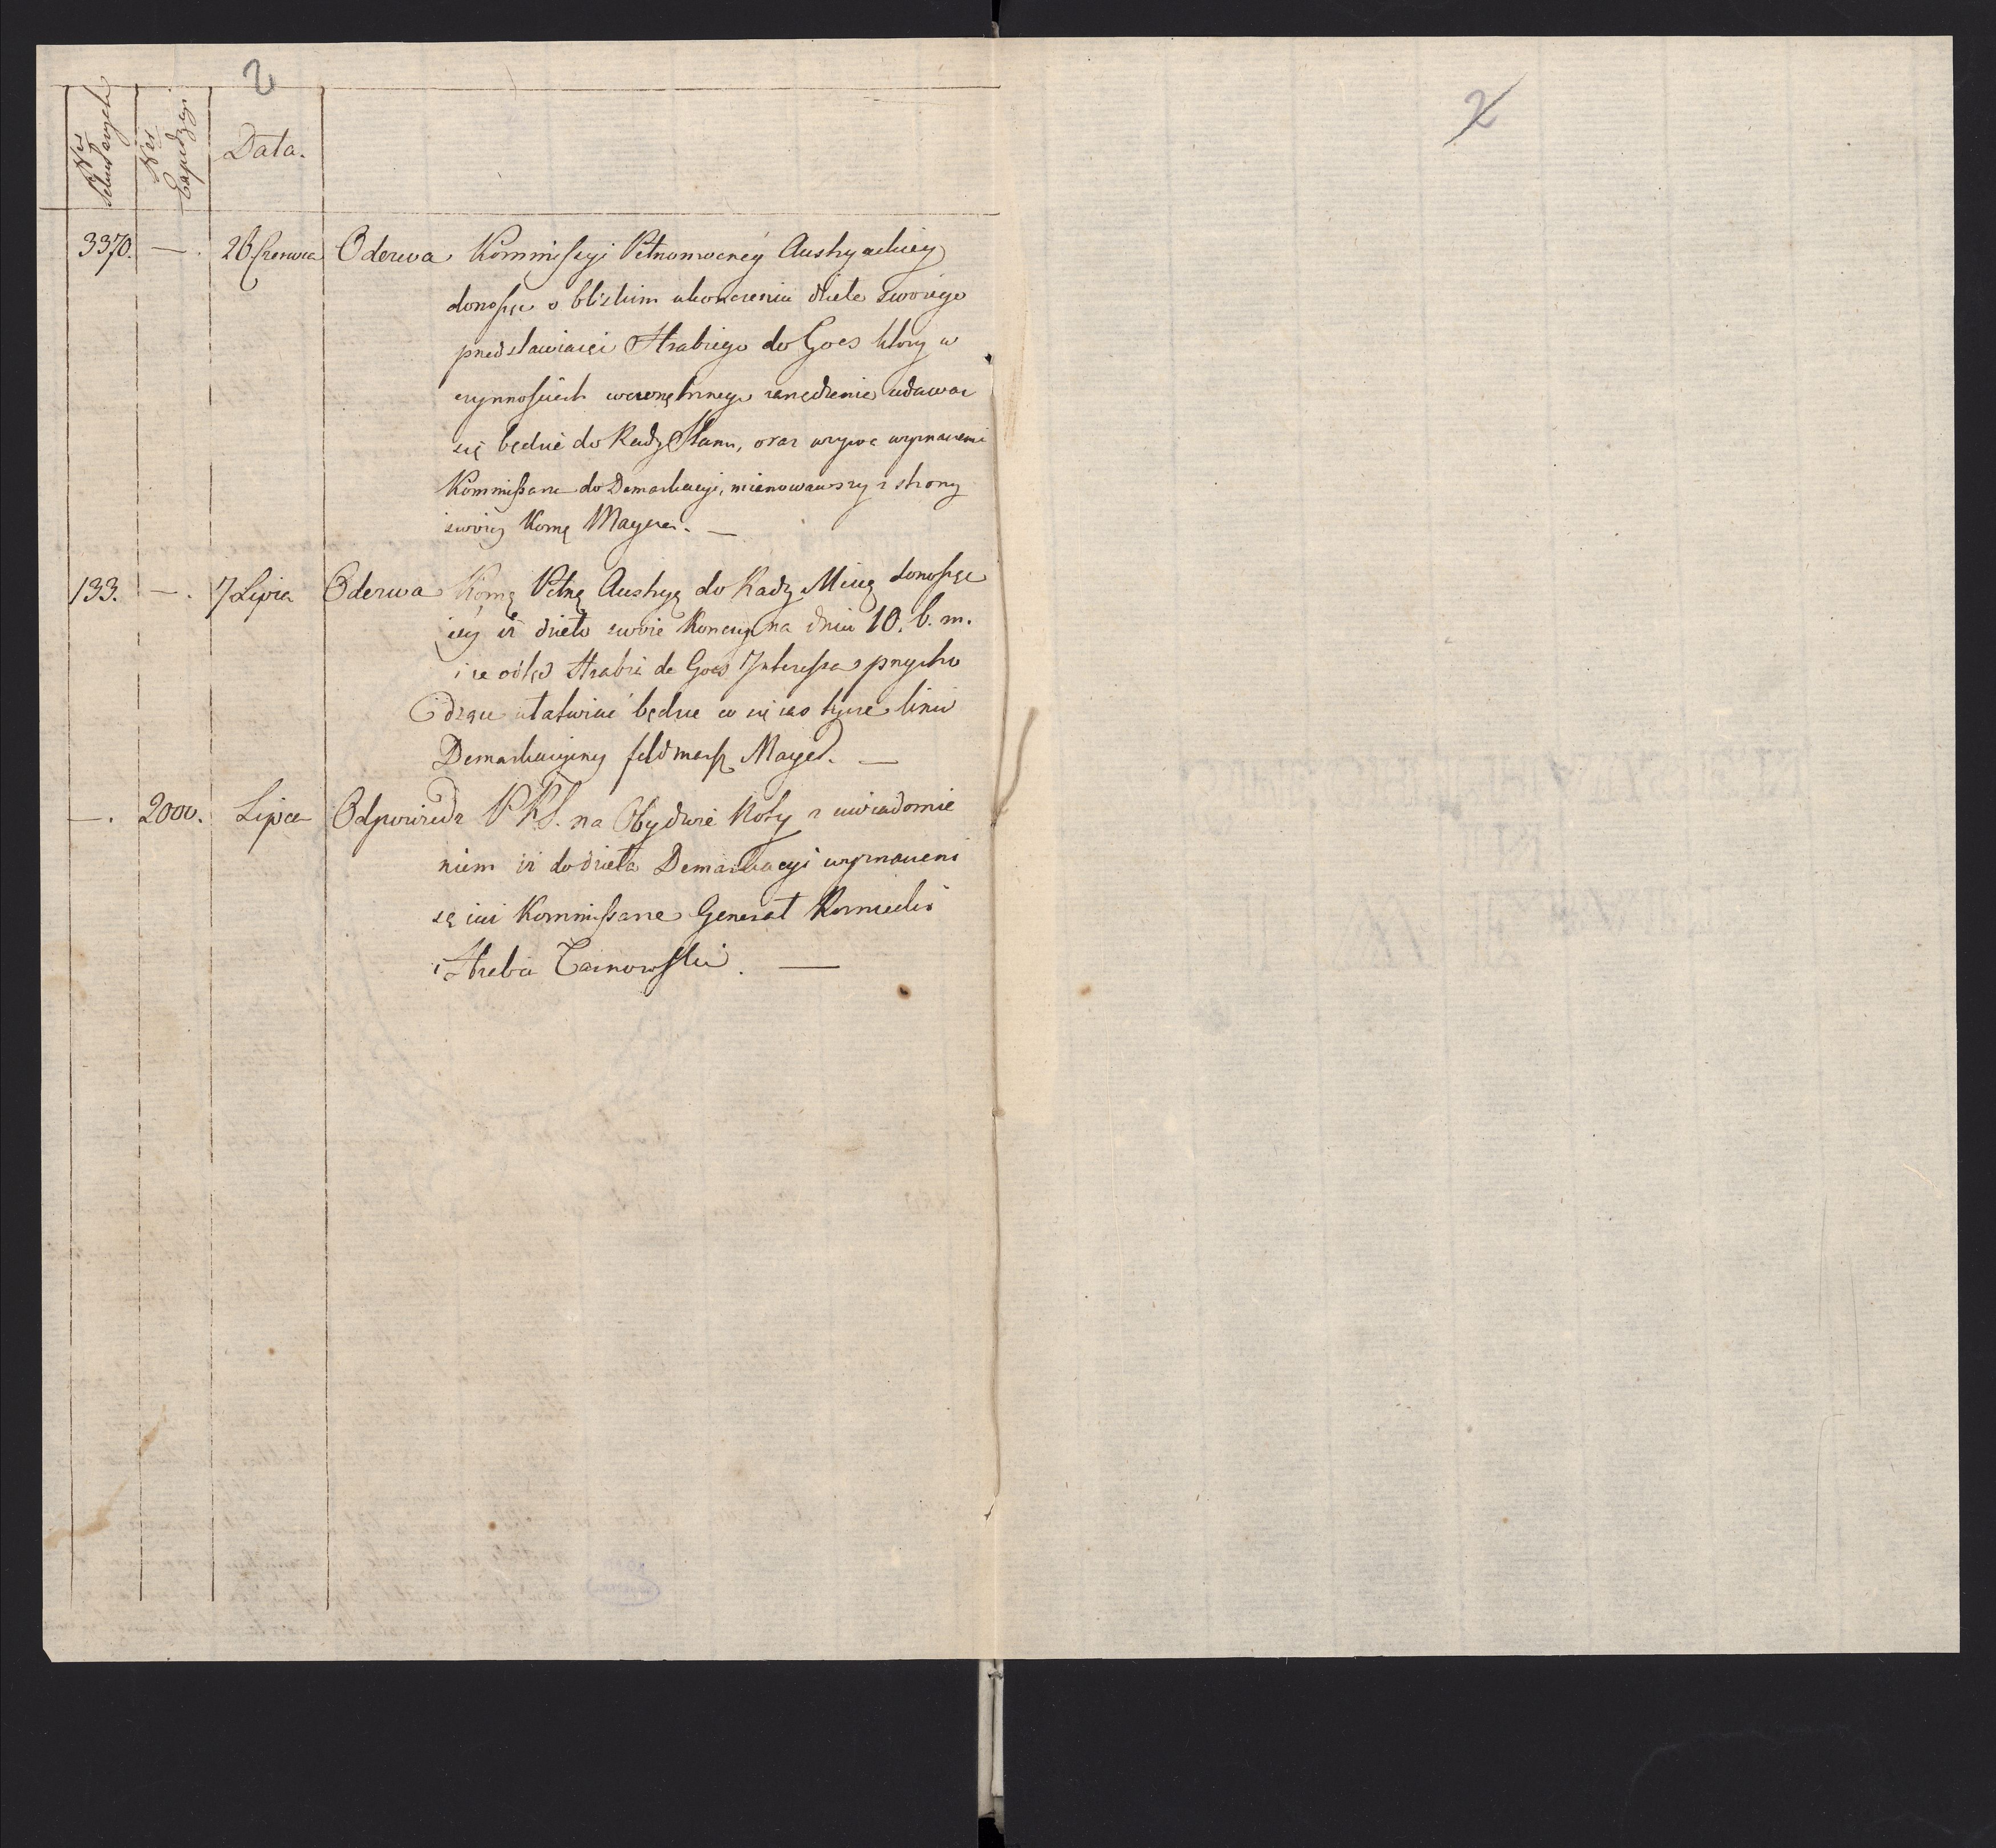 2
2
Nrs
Nrs Expedycyi
Data.
3370. — . 28 Czerwca Odezwa Kommissyi Pełnomocney Austryackiey
donosząc o blizkim ukończeniu dzieła swoiego
przedstawiaięci Hrabiego de Goes który w
czynnościach wewnętrznego rządzenia udawać
się będzie do Rady Stanu, oraz wzywa wyznaczenie
Kommissarza do Demarkacyi, mianowawszy z strony
swoiey Komę Mayera. —
133. — . 7 Lipca Odezwa Komę Pełnę Austryę do Rady Mię donosząc
iey iż dzieło swoie kończy na dniu 10. b. m.
i że odtąd Hrabia de Goes Interessa przycho
dzące ułatwiać będzie co się zaś tycze linii
Demarkacyiney feldmarsz Mayer. —
— . 2000. Lipca Odpowiedz PRS. na Obydwie Noty z uwiadomie
niem iż do dzieła Demarkacyi wyznaczeni
są iuż Kommissarze Generał
i Hrabia Tarnowski. —